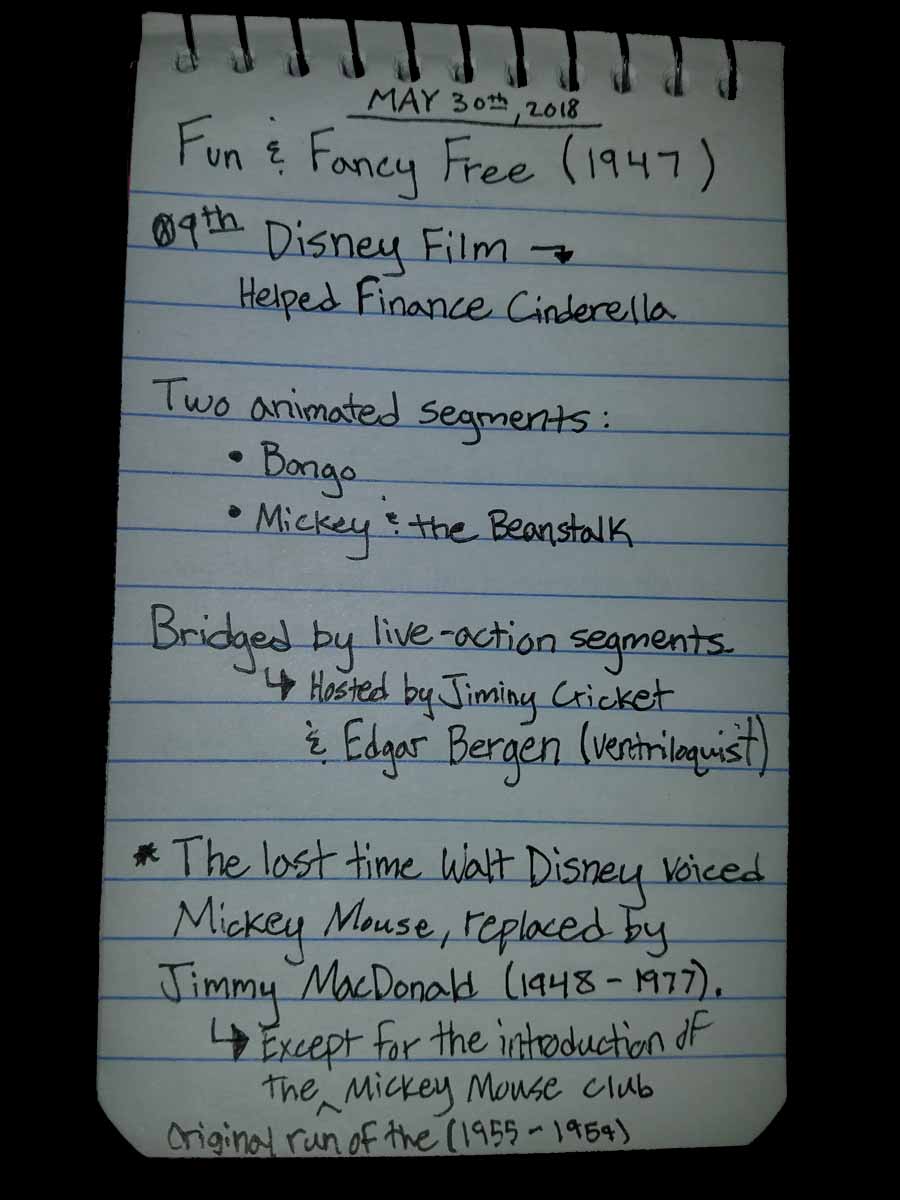 MAY 30th, 2018
Fun & Fancy Free (1947)
9th Disney Film →
Helped Finance Cinderella
Two animated segments:
• Bongo
• Mickey & the Beanstalk
Bridged by live-action segments
↳ Hosted by Jiminy Cricket
& Edgar Bergen (ventriloquist)
* The last time Walt Disney voiced
Mickey Mouse, replaced by
Jimmy MacDonald (1948-1977).
↳ Except for the introduction of
the ^ Mickey Mouse club
original run of the (1955-1959)